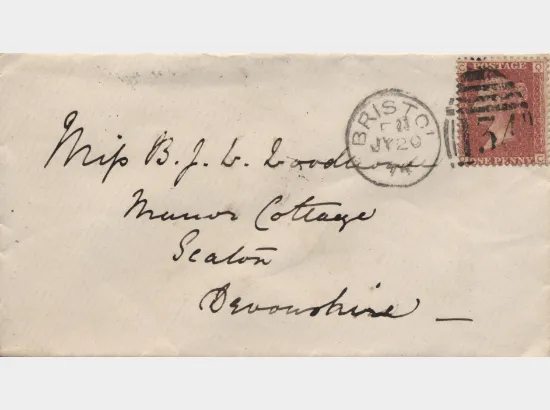 POSTAGE
BRISTOL
JY 20
74
34
ONE PENNY
Miss B. J. L. Woodhouse
Manor Cottage
Seaton
Devonshire